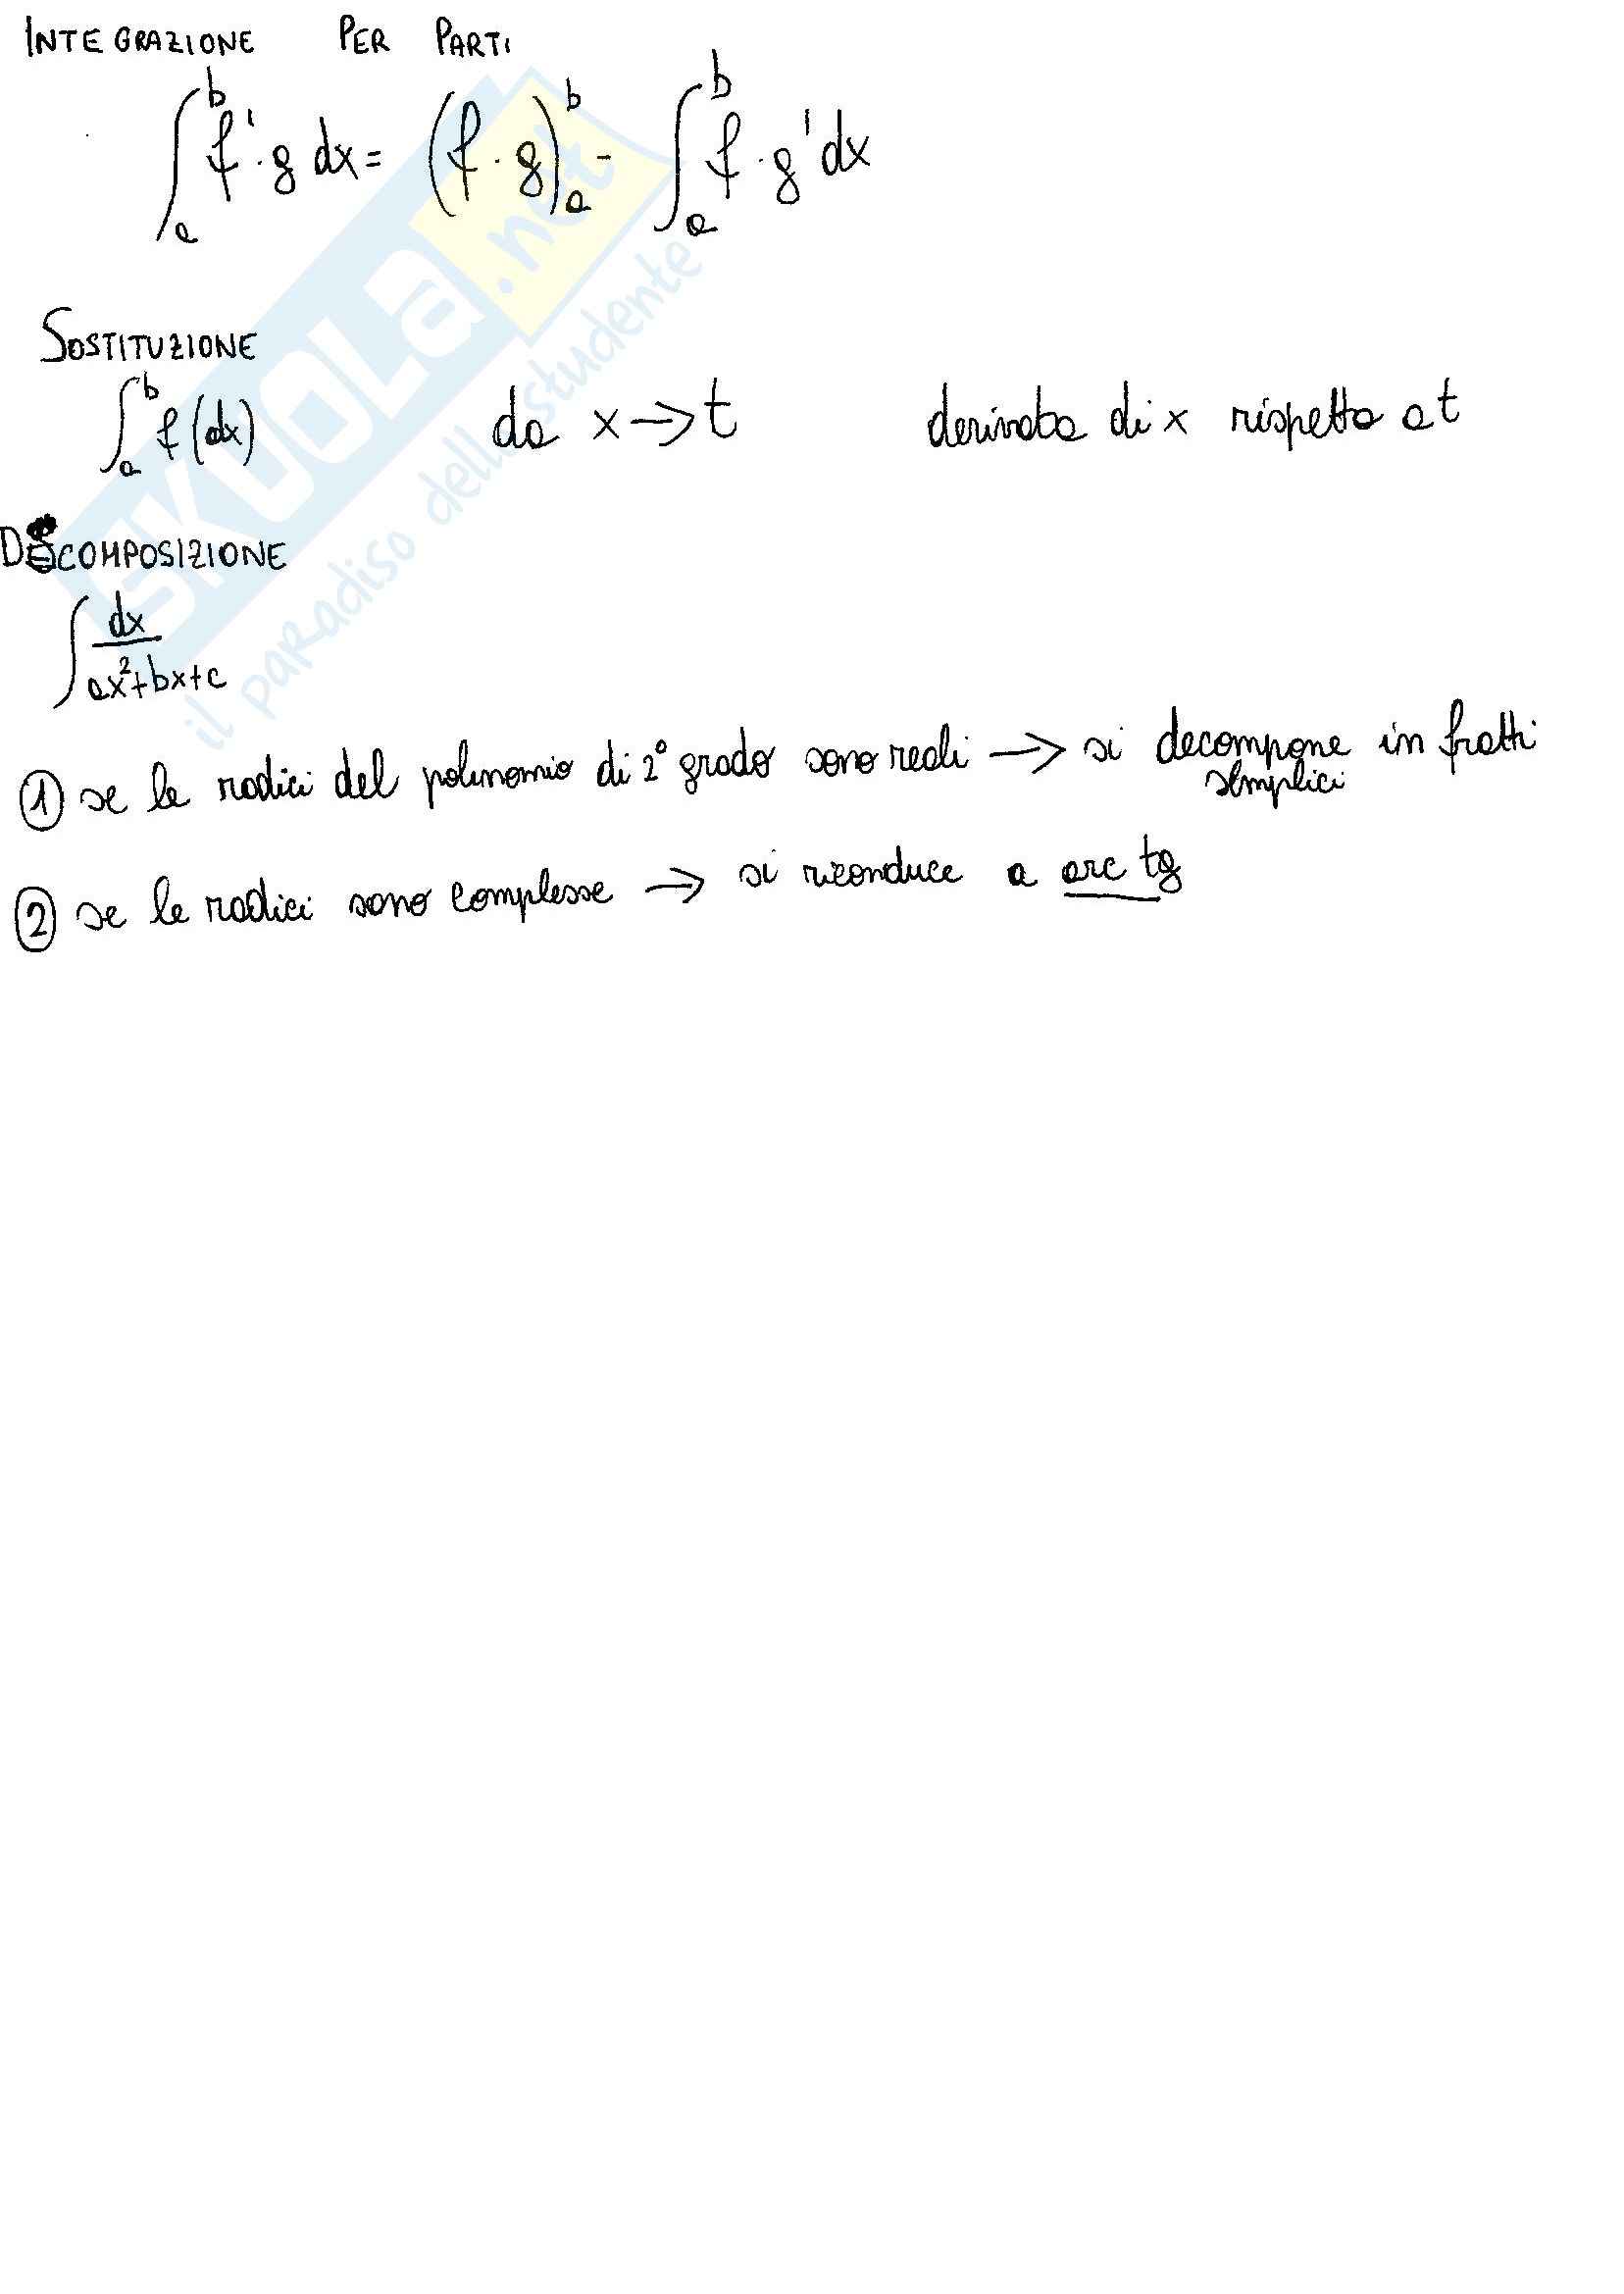 INTEGRAZIONE PER PARTI
∫ₐᵇ f'·g dx = (f·g)ₐᵇ - ∫ₐᵇ f·g' dx
SOSTITUZIONE
∫ₐᵇ f(dx) da x → t derivata di x rispetto a t
DECOMPOSIZIONE
∫ dx / ax²+bx+c
① se le radici del polinomio di 2° grado sono reali → si decompone in fratti
semplici
② se le radici sono complesse → si riconduce a arc tg
SKUOLA.net
il paradiso dello studente